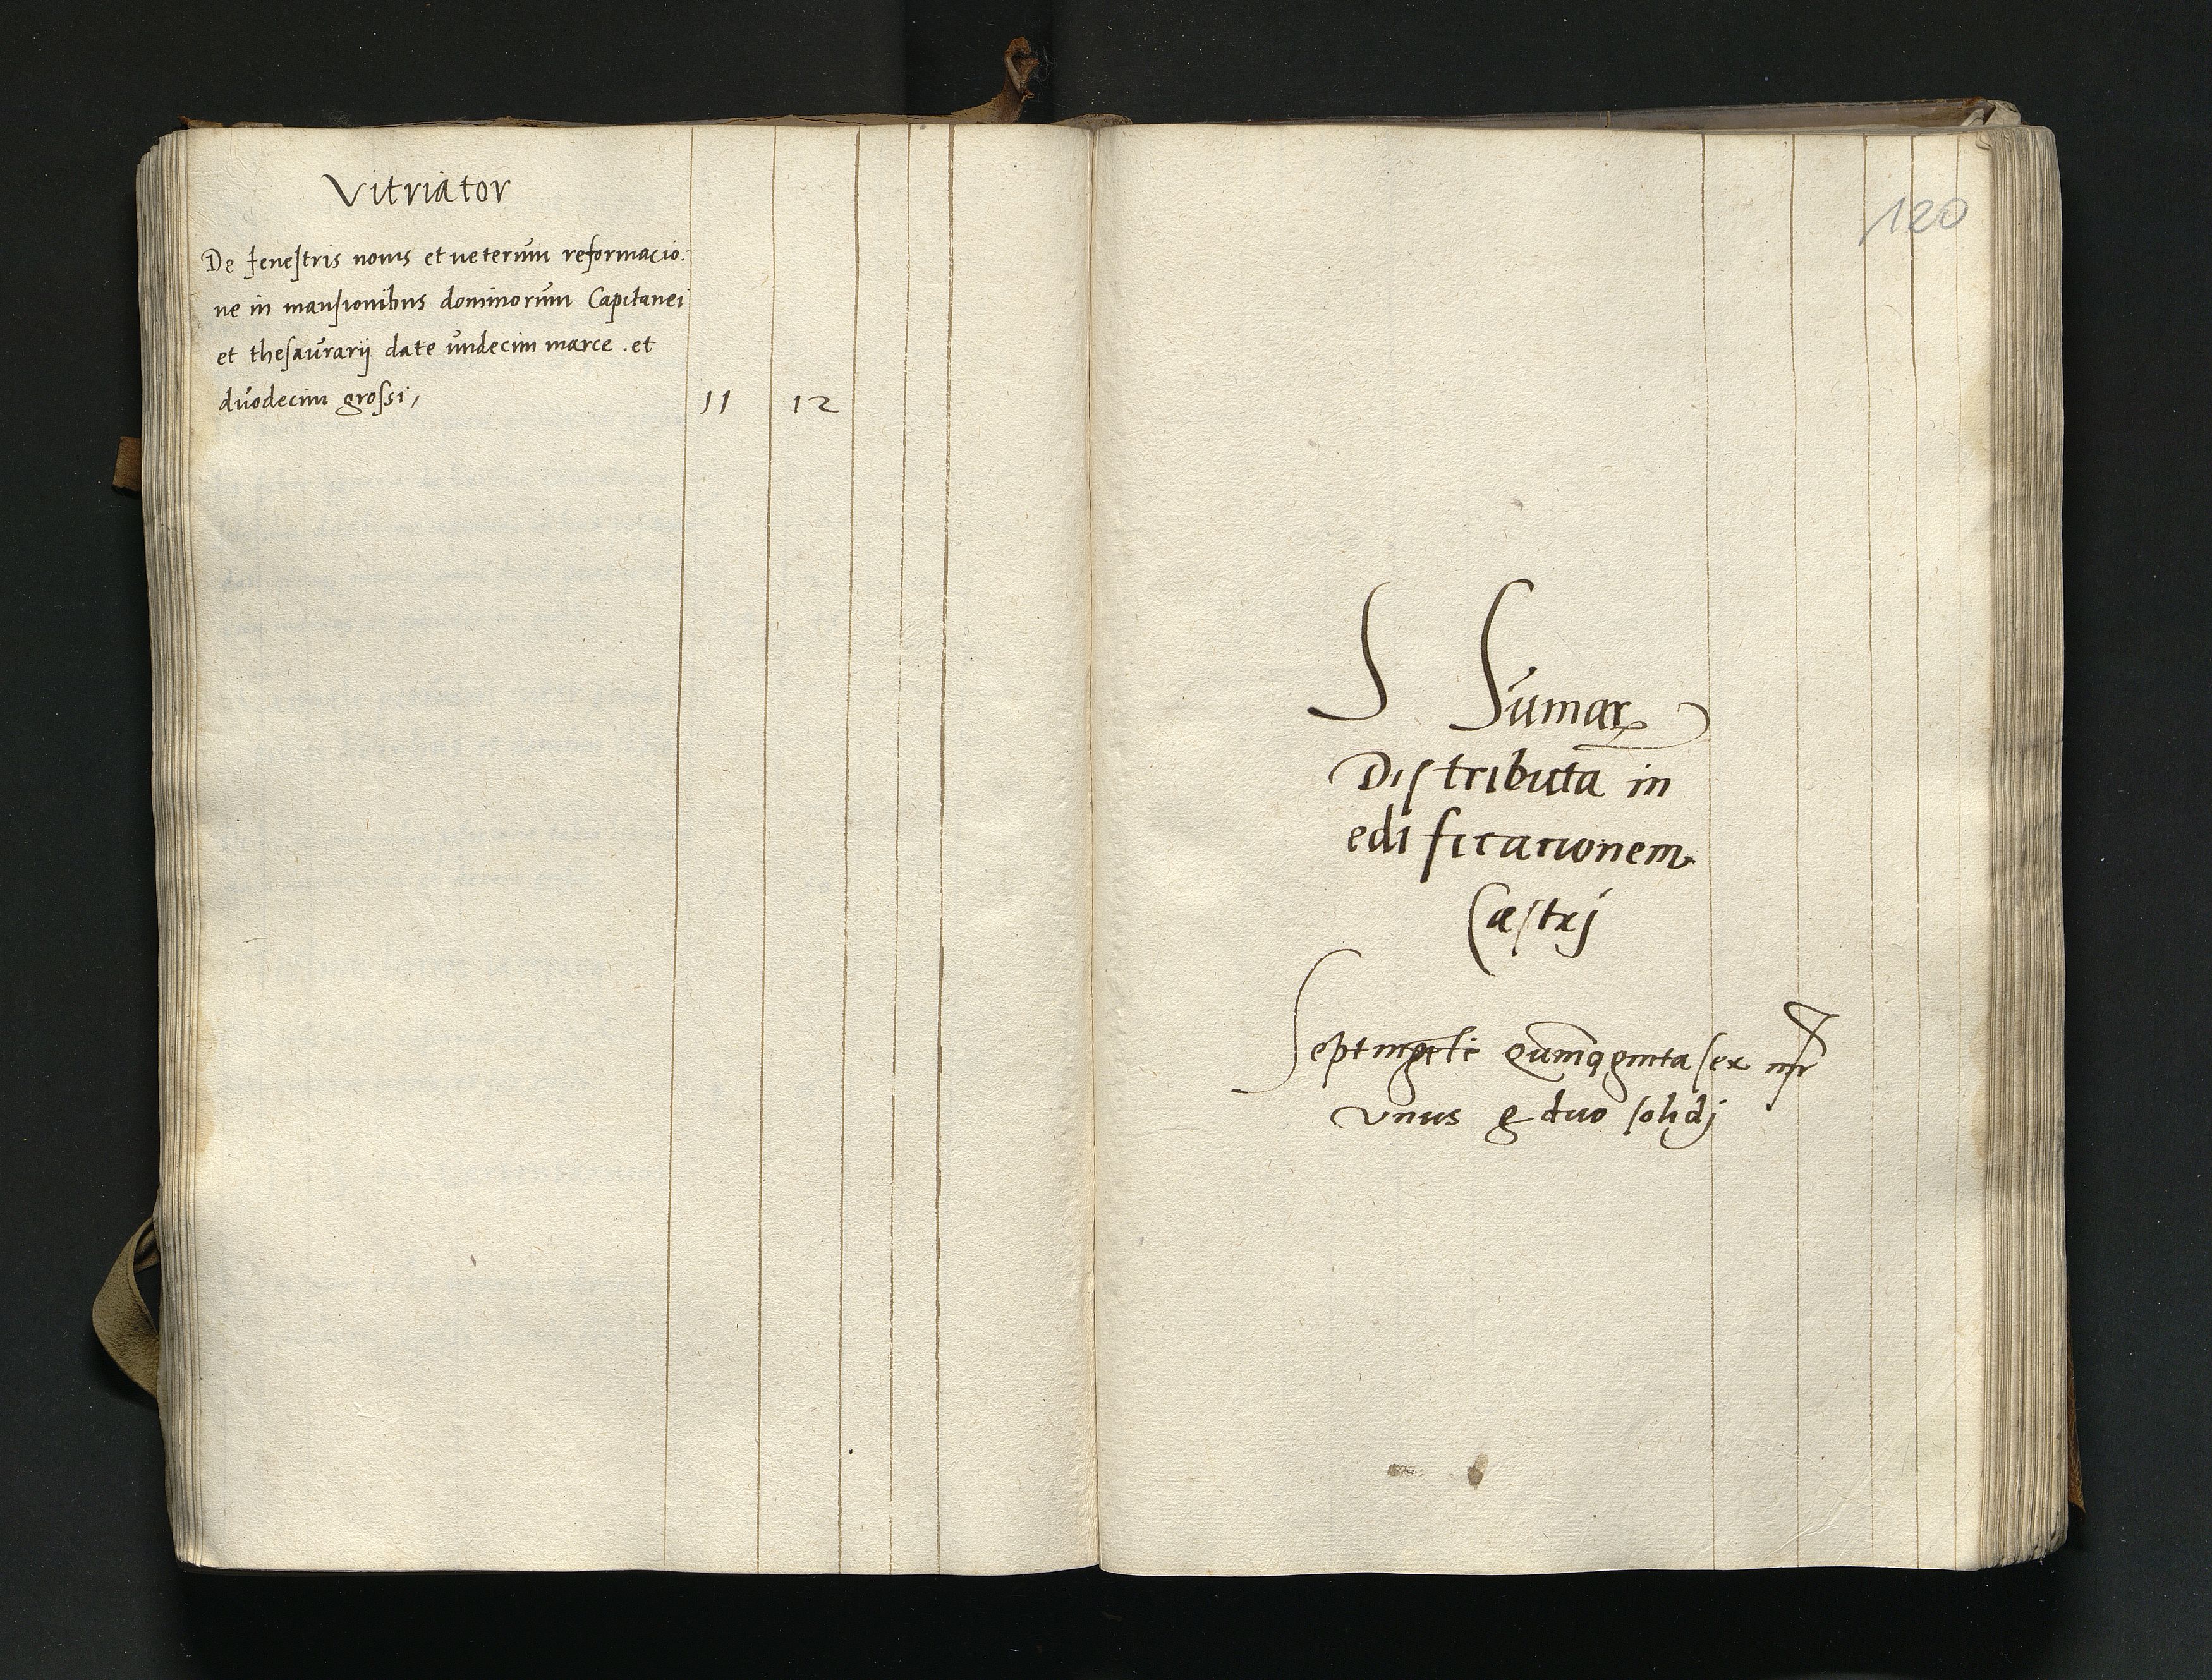 Vitriator
De fenestris novis et veterum reformacio:
ne in mansionibus dominorum Capitanei
et thesaurarij date undecim marce . et
duodecim grossi, 11 12
120
S Sumar
Distributa in
edificacionem
Castrj
Septingēti Quinqginta sex mr
vnus g duo solidj